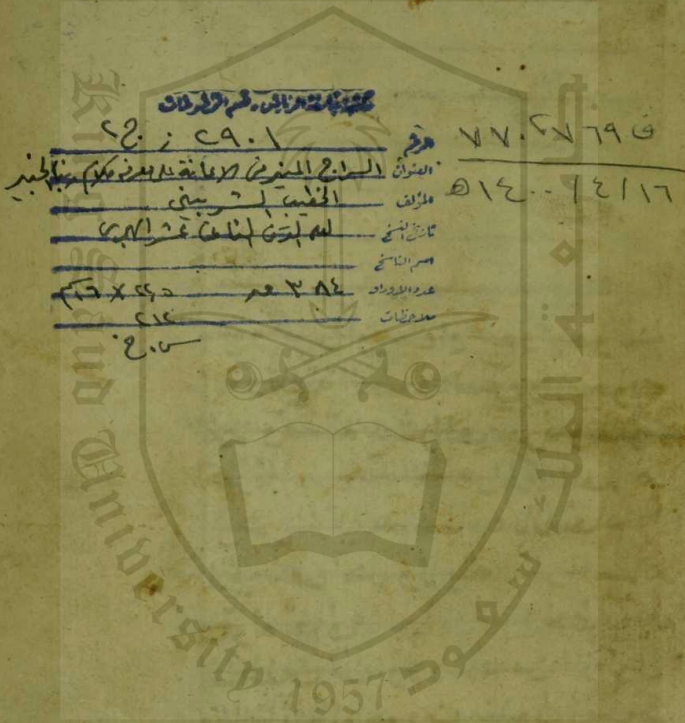 مكتبة جامعة الرياض - قسم المخطوطات
الرقم ٢٩٠١ ز ج٢
العنوان السراج المنير في الاعانة على معرفة كلام ربنا الخبير
المؤلف الخطيب الشربيني
تاريخ النسخ القرن الثاني عشر الهجري
اسم الناسخ
عدد الاوراق ٣٨٤
ملاحظات ٢١٢
س.ع
ف ٧٧٠٢٧٦٩
١٤٠٠/٤/١٦ه
جامعة الملك سعود
King Saud University
1957